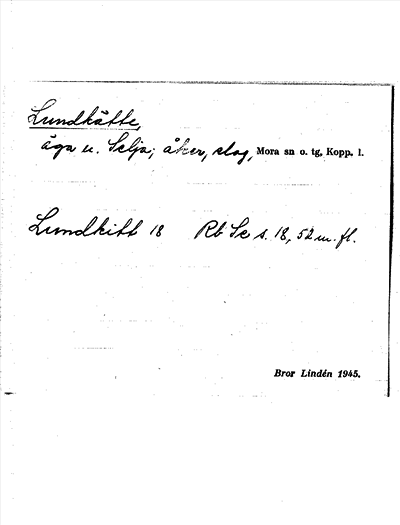 Lundkätte,
äga u. Selja; åker, slog, Mora sn o. tg, Kopp. l.
Lundkitt 18 Rb Se s. 18, 52 m. fl.
Bror Lindén 1945.